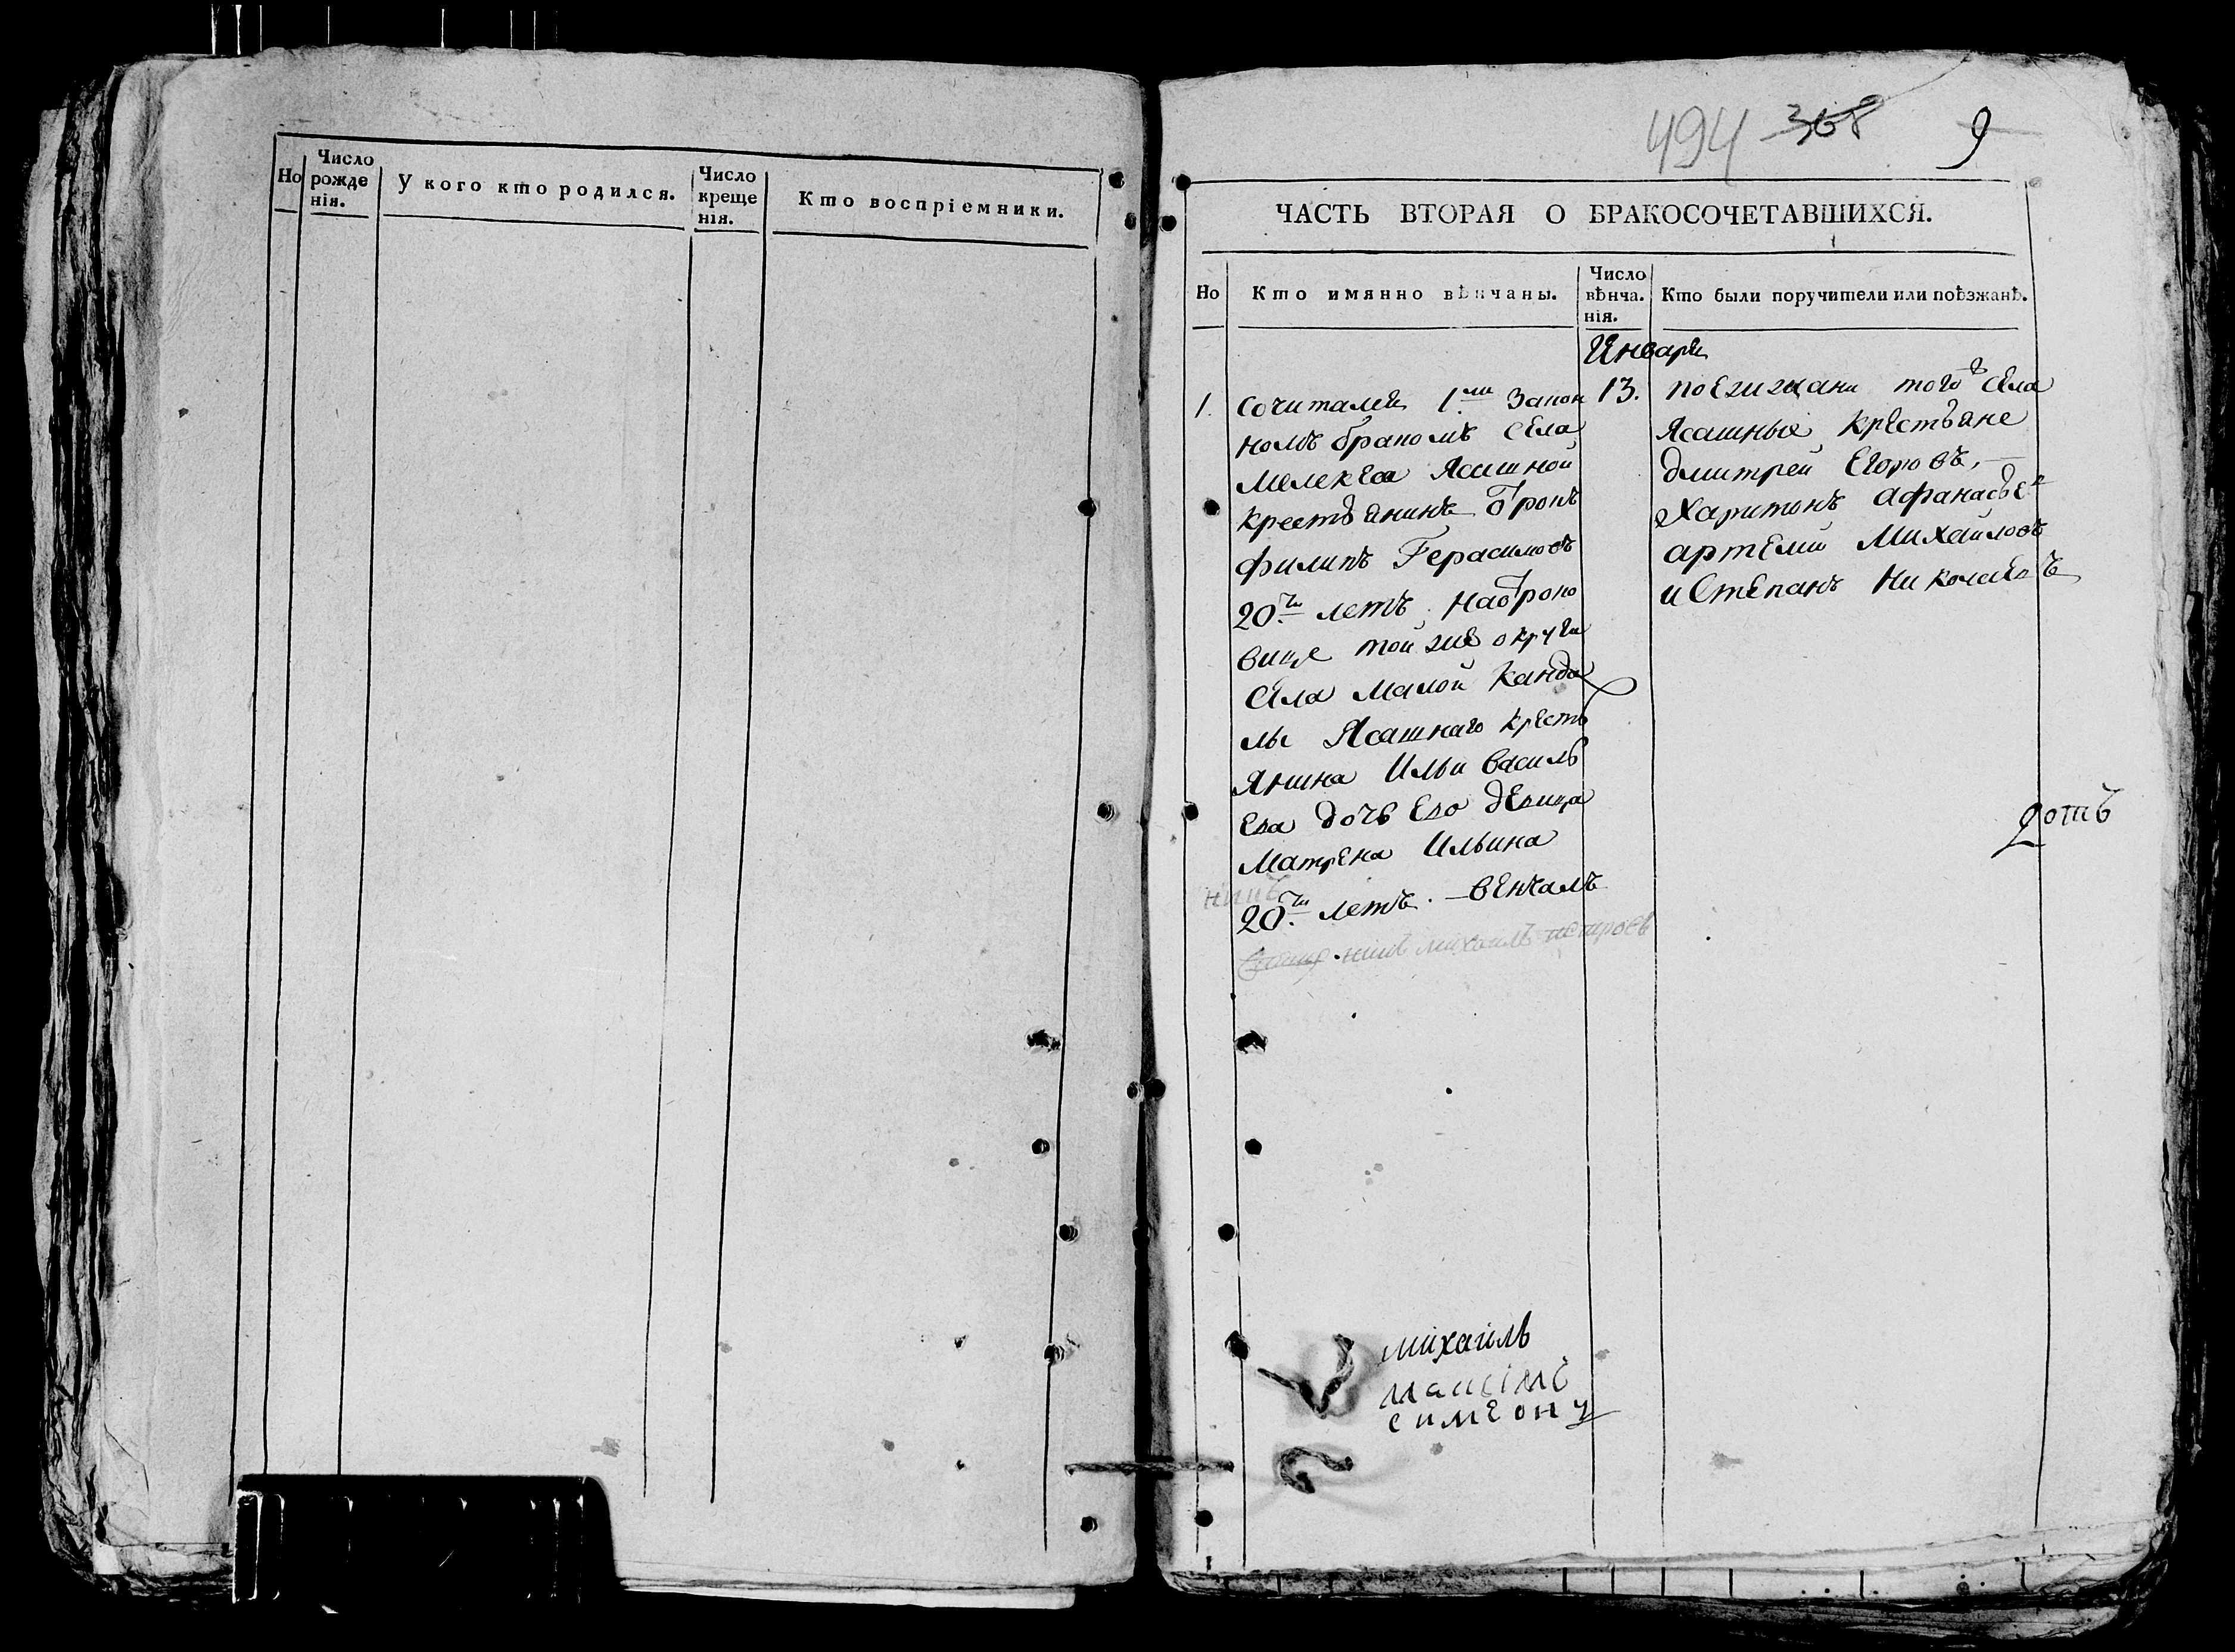 Но
Число рожденія.
У кого кто родился.
Число крещенія.
Кто воспріемники.
494 368 9
ЧАСТЬ ВТОРАЯ О БРАКОСОЧЕТАВШИХСЯ.
Но
Кто имянно вѣнчаны.
Число вѣнча. нія.
Кто были поручители или поѣзжанѣ.
Января
1.
сочитался 1.мъ закон
номъ бракомъ села
Мелекеса Ясашной
крестьянинъ отрокъ
филипъ Герасимовъ
20.ти летъ. на отроко
вице той же округи
села Малой Канда
лы Ясашнаго кресть
янина Ильи василь
ева дочь ево девица
Матрена Ильина
20.ти летъ. – венчалъ
михаилъ петровъ
13.
поезжани того ж села
Ясашные крестьяне
дмитреи Егоровъ, –
Харитонъ афанасьев
артемий Михайловъ
и Степанъ Николаевъ
михаилъ
симеону